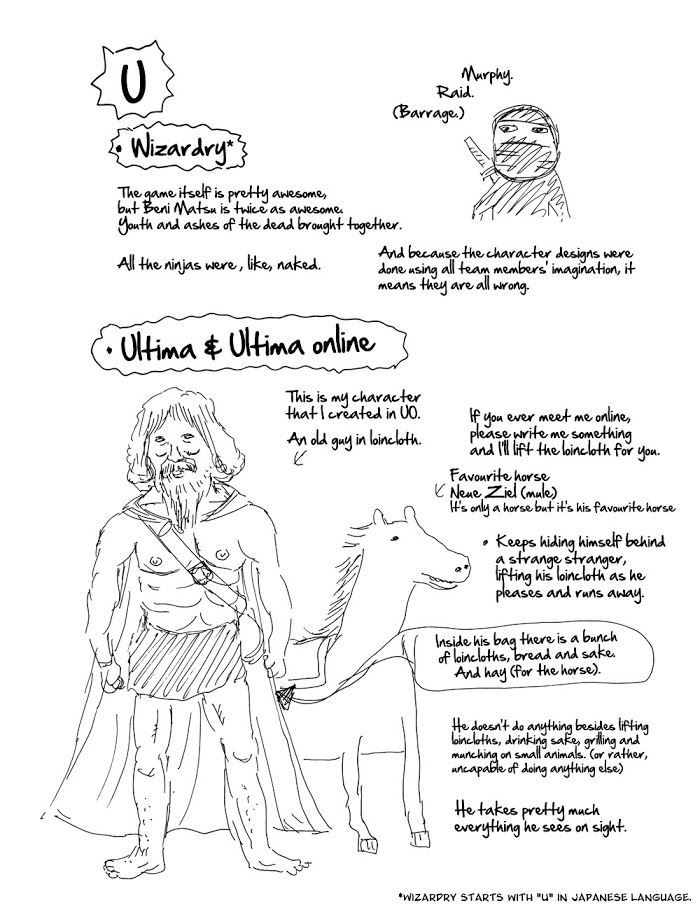 U
• Wizardry*
Murphy.
Raid.
(Barrage.)
The game itself is pretty awesome,
but Beni Matsu is twice as awesome.
Youth and ashes of the dead brought together.
All the ninjas were, like, naked.
And because the character designs were
done using all team members' imagination, it
means they are all wrong.
• Ultima & Ultima online
This is my character
that I created in UO.
An old guy in loincloth.
If you ever meet me online,
please write me something
and I'll lift the loincloth for you.
Favourite horse
Neue Ziel (mule)
It's only a horse but it's his favourite horse
• Keeps hiding himself behind
a strange stranger,
lifting his loincloth as he
pleases and runs away.
Inside his bag there is a bunch
of loincloths, bread and sake.
And hay (for the horse).
He doesn't do anything besides lifting
loincloths, drinking sake, grilling and
munching on small animals. (or rather,
uncapable of doing anything else)
He takes pretty much
everything he sees on sight.
*WIZARDRY STARTS WITH "U" IN JAPANESE LANGUAGE.